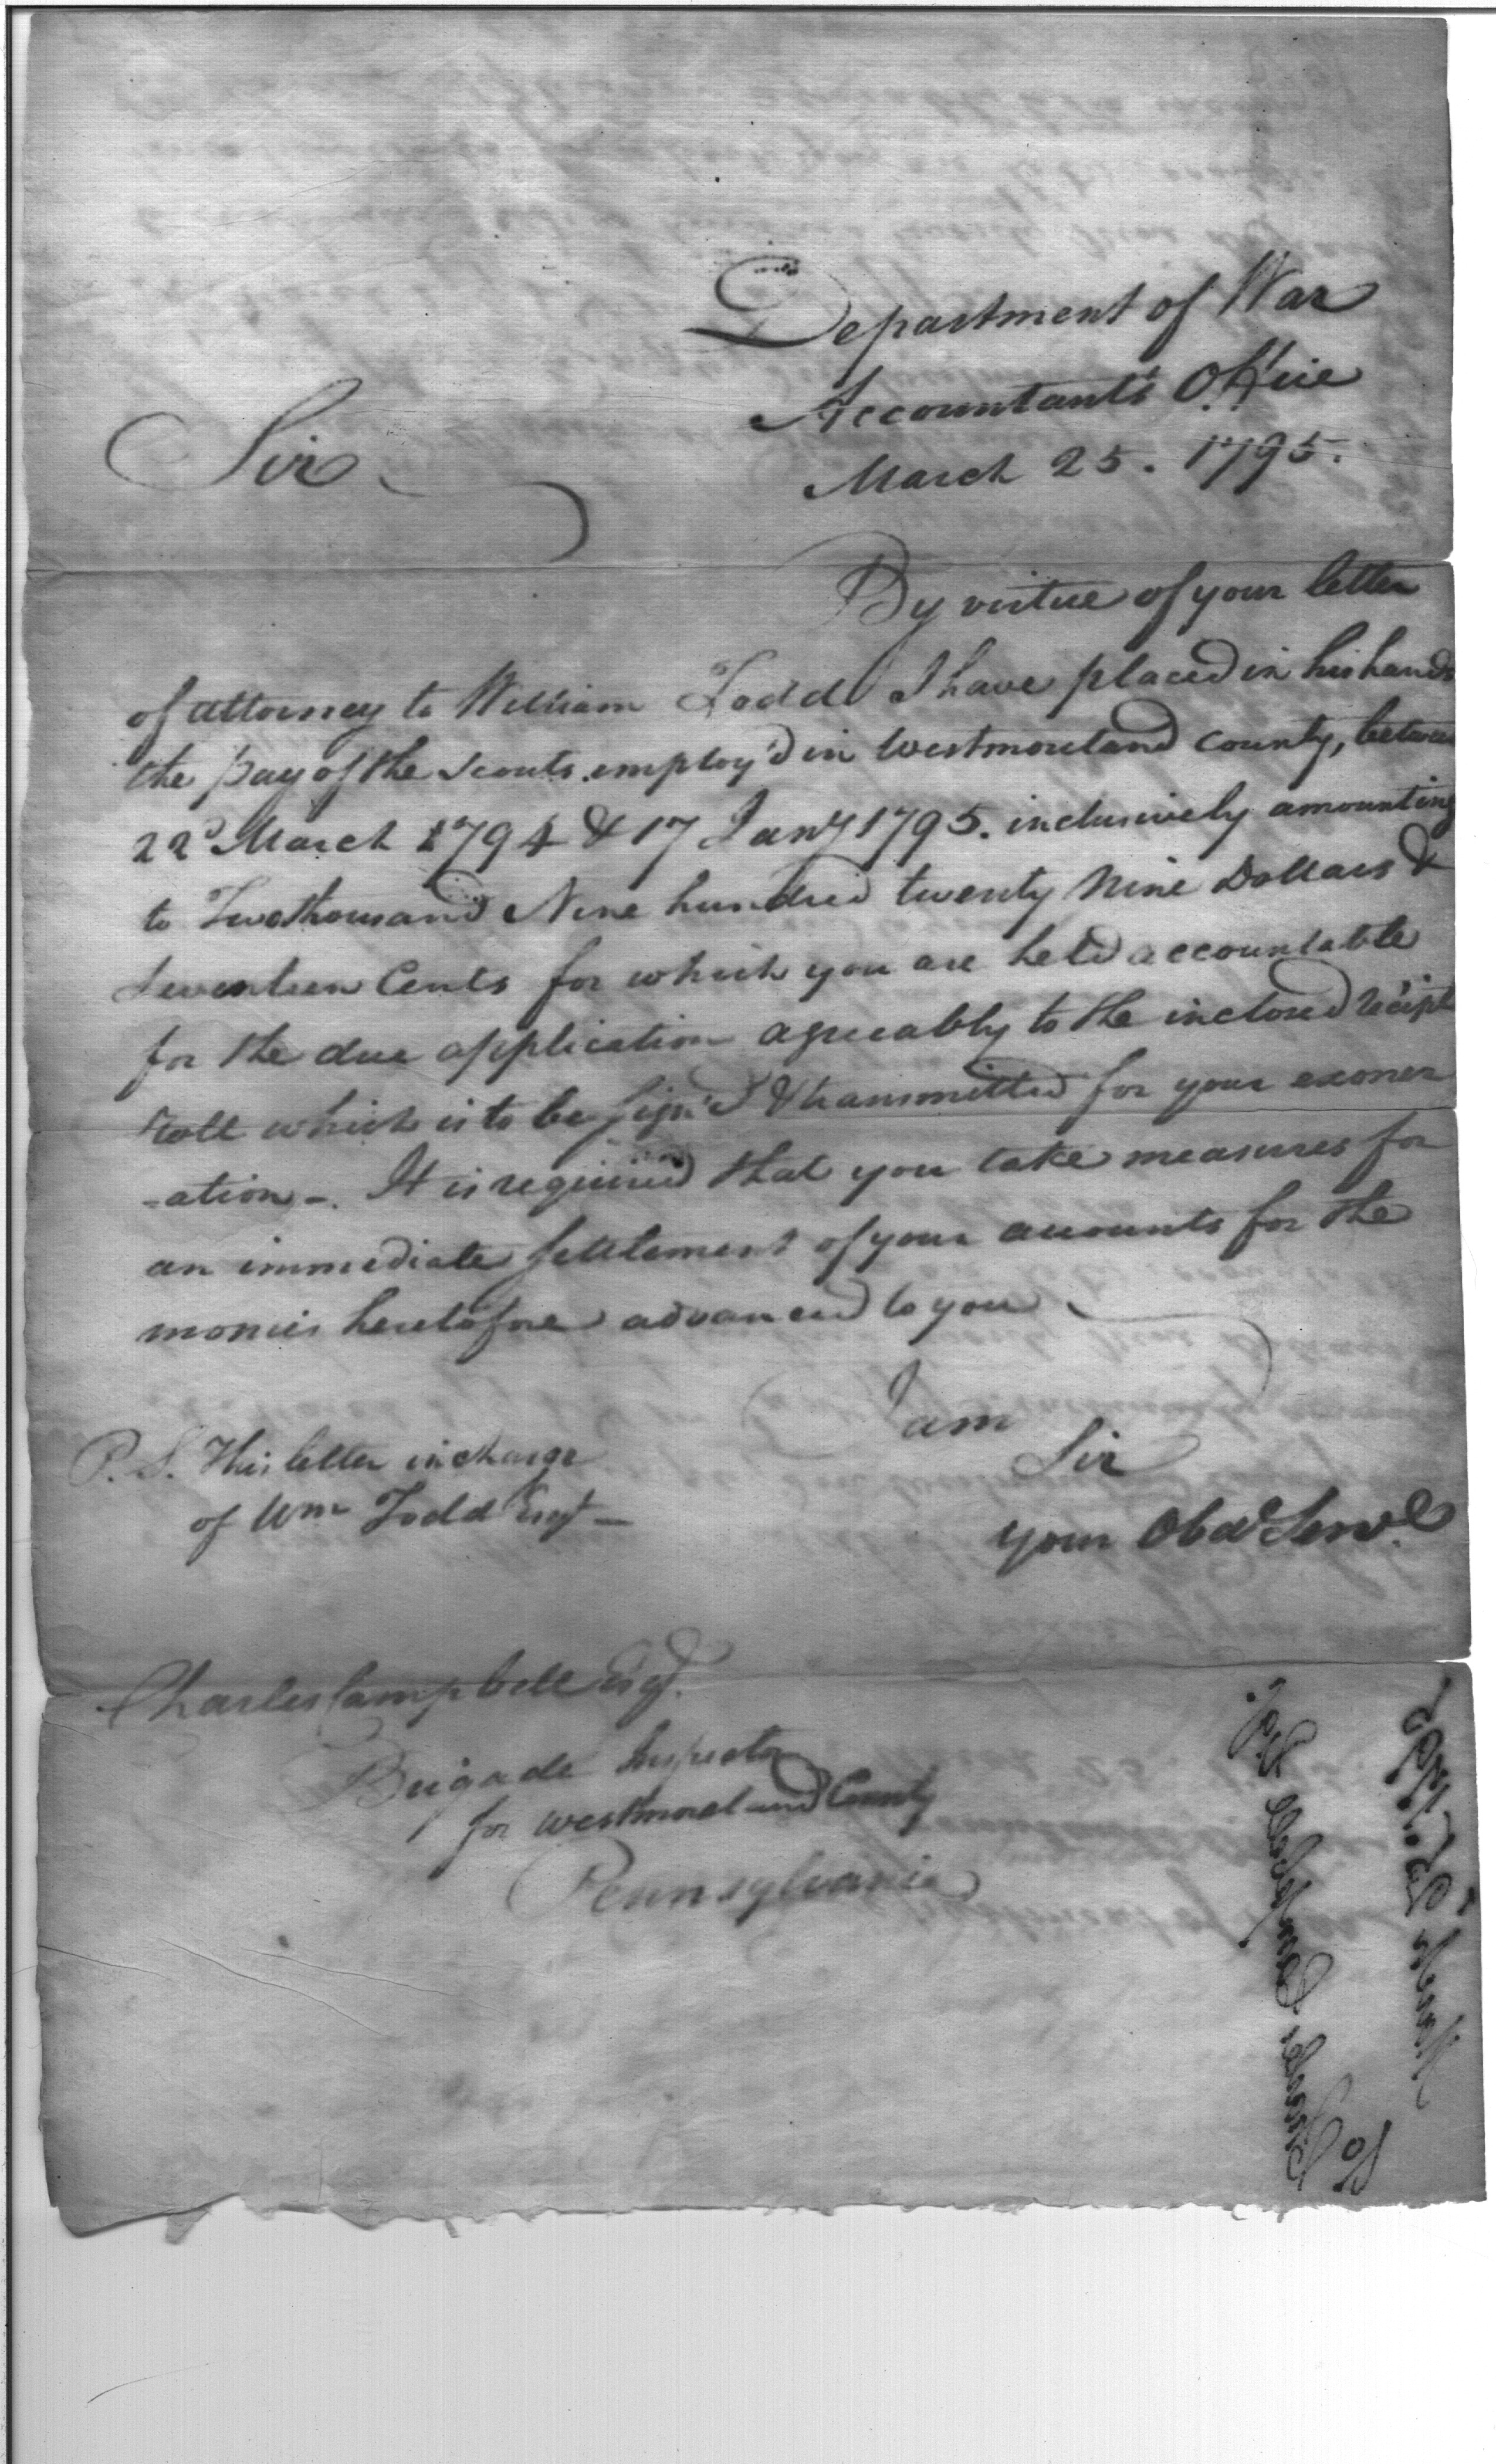 Department of War
Accountant's Office
March 25. 1795.
Sir
By virtue of your letter
of attorney to William Todd I have placed in his hands
the pay of the scouts employ'd in Westmoreland County, between
22d March 1794 & 17 Jany 1795. inclusively amounting
to Two thousand Nine hundred twenty Nine Dollars &
Seventeen Cents for which you are held accountable
for the due application agreeably to the inclosed receipt
roll which is to be sign'd & transmitted for your exoner
-ation -. It is required that you take measures for
an immediate settlement of your accounts for the
monies heretofore advanced to you
I am
Sir
your Obdt Servt.
P.S. This letter in charge
of Wm Todd Esqr -
Charles Campbell Esqr.
Brigade Inspector
for Westmoreland County
Pennsylvania
To
Charles Campbell Esqr.
March 25. 1795